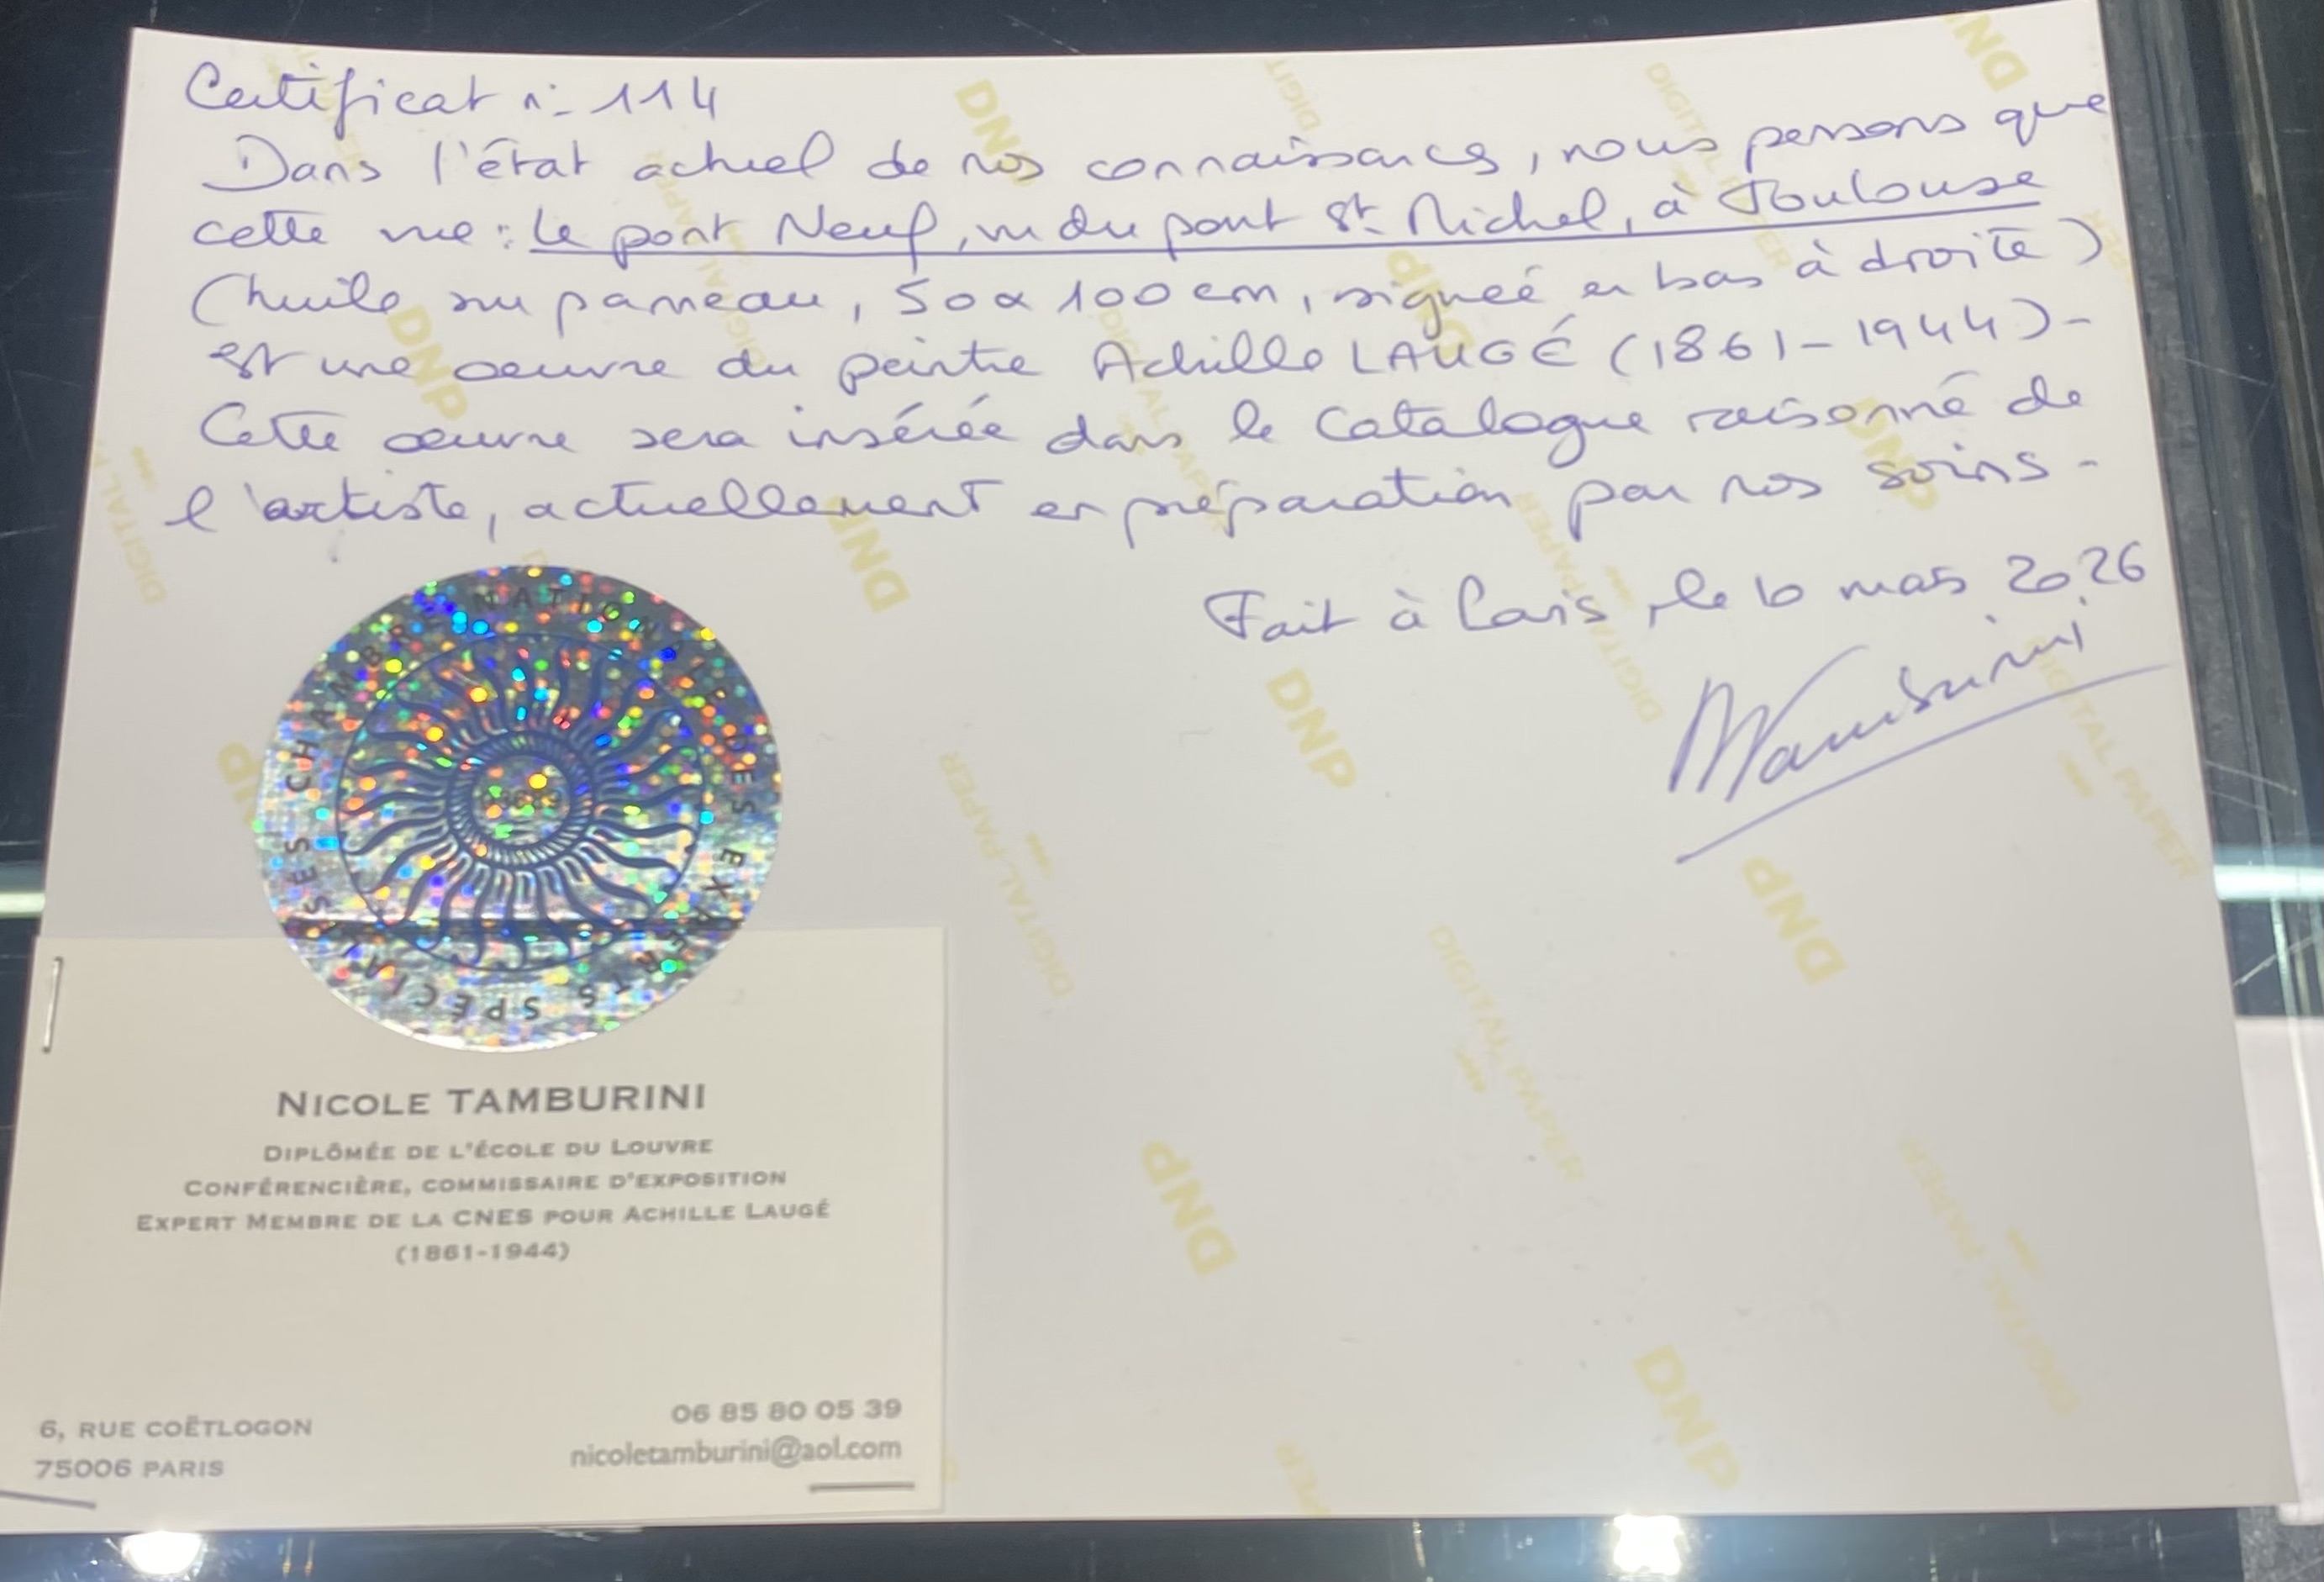 Certificat n. 114
Dans l'état actuel de nos connaissances, nous pensons que
cette vue : Le pont Neuf, vu du pont St Michel, à Toulouse
(huile sur panneau, 50 x 100 cm, signée en bas à droite)
est une oeuvre du peintre Achille LAUGÉ (1861-1944)-
Cette oeuvre sera insérée dans le Catalogue raisonné de
l'artiste, actuellement en préparation par nos soins-
Fait à Paris, le 10 mars 2026
NTamburini
CHAMBRE NATIONALE DES EXPERTS SPÉCIALISÉS
NICOLE TAMBURINI
DIPLÔMÉE DE L'ÉCOLE DU LOUVRE
CONFÉRENCIÈRE, COMMISSAIRE D'EXPOSITION
EXPERT MEMBRE DE LA CNES POUR ACHILLE LAUGÉ
(1861-1944)
6, RUE COËTLOGON
75006 PARIS
06 85 80 05 39
nicoletamburini@aol.com
DNP
DIGITAL PAPER